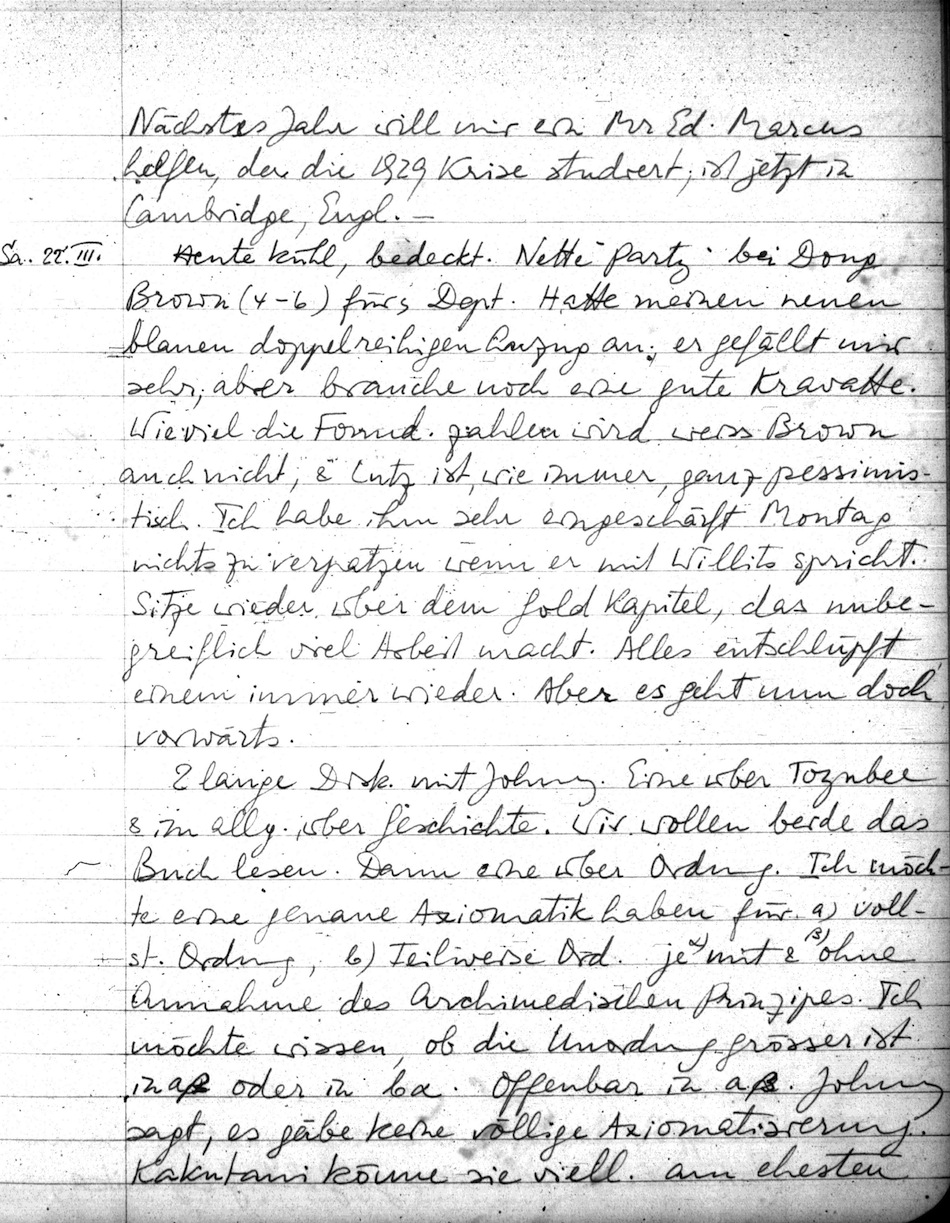 Nächstes Jahr will mir ein Mr Ed. Marcus
helfen, der die 1929 Krise studiert; ist jetzt in
Cambridge, Engl. –
Sa. 22. III. Heute kühl, bedeckt. Nette Party bei Doug
Brown (4–6) fürs Dept. Hatte meinen neuen
blauen doppelreihigen Anzug an; er gefällt mir
sehr, aber brauche noch eine gute Kravatte.
Wieviel die Found. zahlen wird weiss Brown
auch nicht, & Lutz ist, wie immer, ganz pessimis-
tisch. Ich habe ihm sehr eingeschärft Montag
nichts zu verpatzen wenn er mit Willits spricht.
Sitze wieder über dem Gold Kapitel, das unbe-
greiflich viel Arbeit macht. Alles entschlüpft
einem immer wieder. Aber es geht nun doch
vorwärts.
2 lange Disk. mit Johnny. Eine über Toynbee
& im allg. über Geschichte. Wir wollen beide das
Buch lesen. Dann eine über Ordng. Ich möch-
te eine genaue Axiomatik haben für a) voll-
st. Ordng, b) Teilweise Ord. je α) mit & β) ohne
Annahme des Archimedischen Prinzipes. Ich
möchte wissen, ob die Unordng grösser ist
in aβ oder in bα. Offenbar in aβ. Johnny
sagt, es gäbe keine völlige Axiomatisierung.
Kakutani könne sie viell. am ehesten